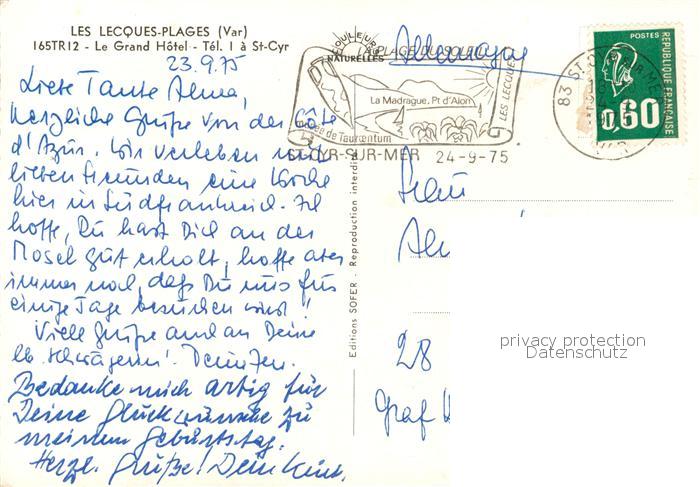 LES LECQUES-PLAGES (Var)
165TR12 - Le Grand Hôtel - Tél. 1 à St-Cyr
23.9.75
Liebe Tante Alma,
herzliche Grüße von der Côte
d'Azur. Wir verleben mit
lieben Freunden eine Woche
hier in Südfrankreich. Ich
hoffe, Du hast Dich an der
Mosel gut erholt, hoffe aber
immer noch, daß Du uns für
einige Tage besuchen wirst!
Viele Grüße auch an Deine
lb. Schwägerin!
Bedanke mich artig für
Deine Glückwünsche zu
meinem Geburtstag.
Herzl. Grüße! Dein
COULEURS
NATURELLES
Editions SOFER - Reproduction interdite
LA PLAGE DU SOLEIL
La Madrague. Pt d'Alon
LES LECQUES
Musée de Tauroentum
ST-CYR-SUR-MER 24-9-75
Allemagne
POSTES
REPUBLIQUE FRANÇAISE
0,60
83 ST-CYR-SUR-MER
VAR
Frau
28
Graf
privacy protection
Datenschutz